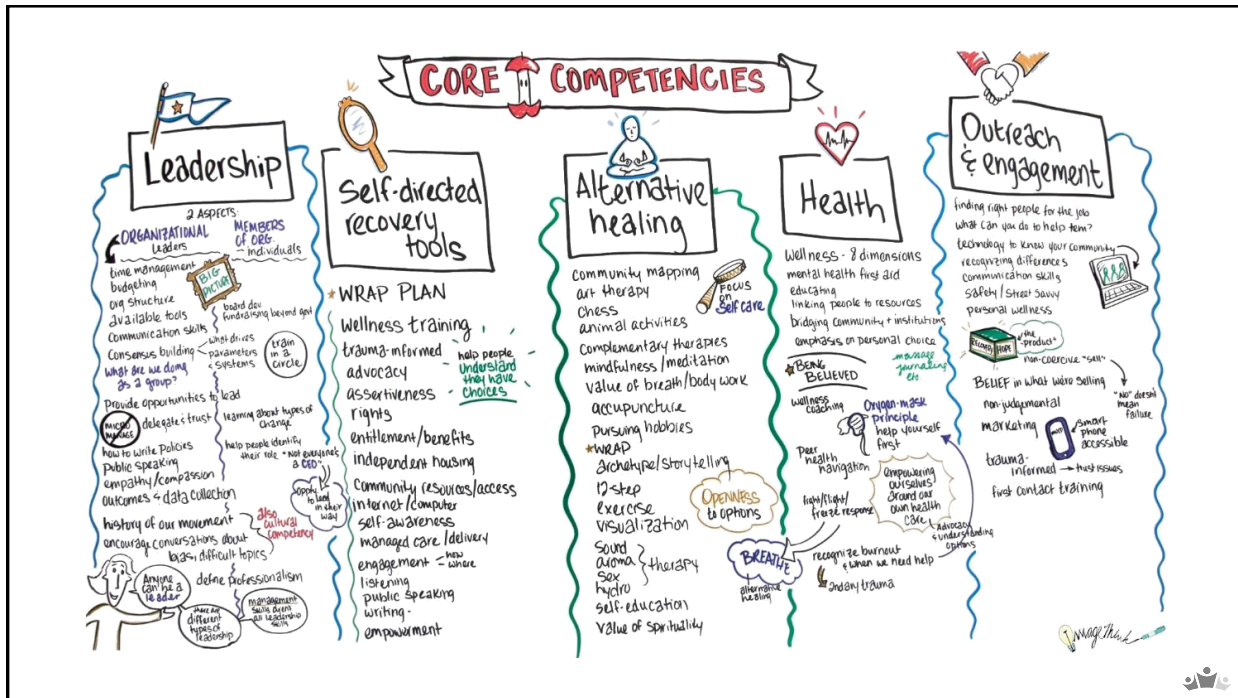 CORE COMPETENCIES
Leadership
2 ASPECTS:
ORGANIZATIONAL
Leaders
MEMBERS
OF ORG.
individuals
BIG
PICTURE
time management
budgeting
org structure
available tools
communication skills
board dev
fundraising beyond govt
Consensus building
what drives
parameters
systems
train
in a
circle
What are we doing
as a group?
Provide opportunities to lead
MICRO
MANAGE
delegate & trust
learning about types of
change
how to write Policies
Public speaking
empathy/compassion
outcomes & data collection
help people identify
their role
"Not everyone's
a CEO"
apply
to lead
in their
way
history of our movement
encourage conversations about
bias, difficult topics
also
cultural
competency
define professionalism
Anyone
can be a
leader
there are
different
types of
leadership
management
skills arent
all leadership
skills
Self-directed
recovery
tools
WRAP PLAN
wellness training
trauma-informed
advocacy
assertiveness
rights
entitlement/benefits
independent housing
community resources/access
internet/computer
self-awareness
managed care/delivery
engagement = how
where
listening
public speaking
writing.
empowerment
help people
understand
they have
choices
Alternative
healing
community mapping
art therapy
chess
animal activities
FOCUS
on
Self care
complementary therapies
mindfulness/meditation
value of breath/body work
accupuncture
pursuing hobbies
WRAP
archetype/storytelling
12-step
exercise
visualization
OPENNESS
to options
sound
aroma
sex
hydro
therapy
self-education
value of spirituality
Health
Wellness - 8 dimensions
mental health first aid
educating
linking people to resources
bridging community + institutions
emphasis on personal choice
massage
journaling
etc
BEING
BELIEVED
wellness
coaching
Oxygen-mask
principle
help yourself
first
peer
health
navigation
empowering
ourselves
around our
own health
care
fight/flight/
freeze response
Advocacy
& understanding
options
BREATHE
alternative
healing
recognize burnout
& when we need help
2ndary trauma
Outreach
& engagement
finding right people for the job
what can you do to help tem?
technology to know your community
recognizing differences
communication skills
safety/street savvy
personal wellness
RECOVERY
HOPE
the
"product"
non-coercive "sell"
BELIEF in what we're selling
"NO" doesn't
mean
failure
non-judgemental
marketing
smart
phone
accessible
trauma-
informed → trust issues
first contact training
ImageThink